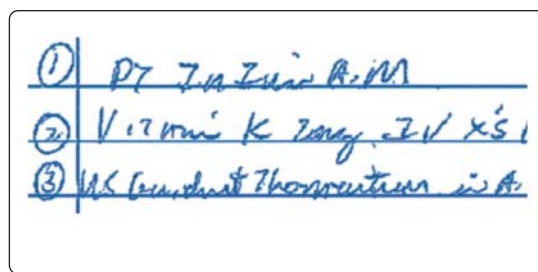 ① PT in A.M
② Vitamin K 10mg IV x's 1
③ US Guided Thoracentesis in A.